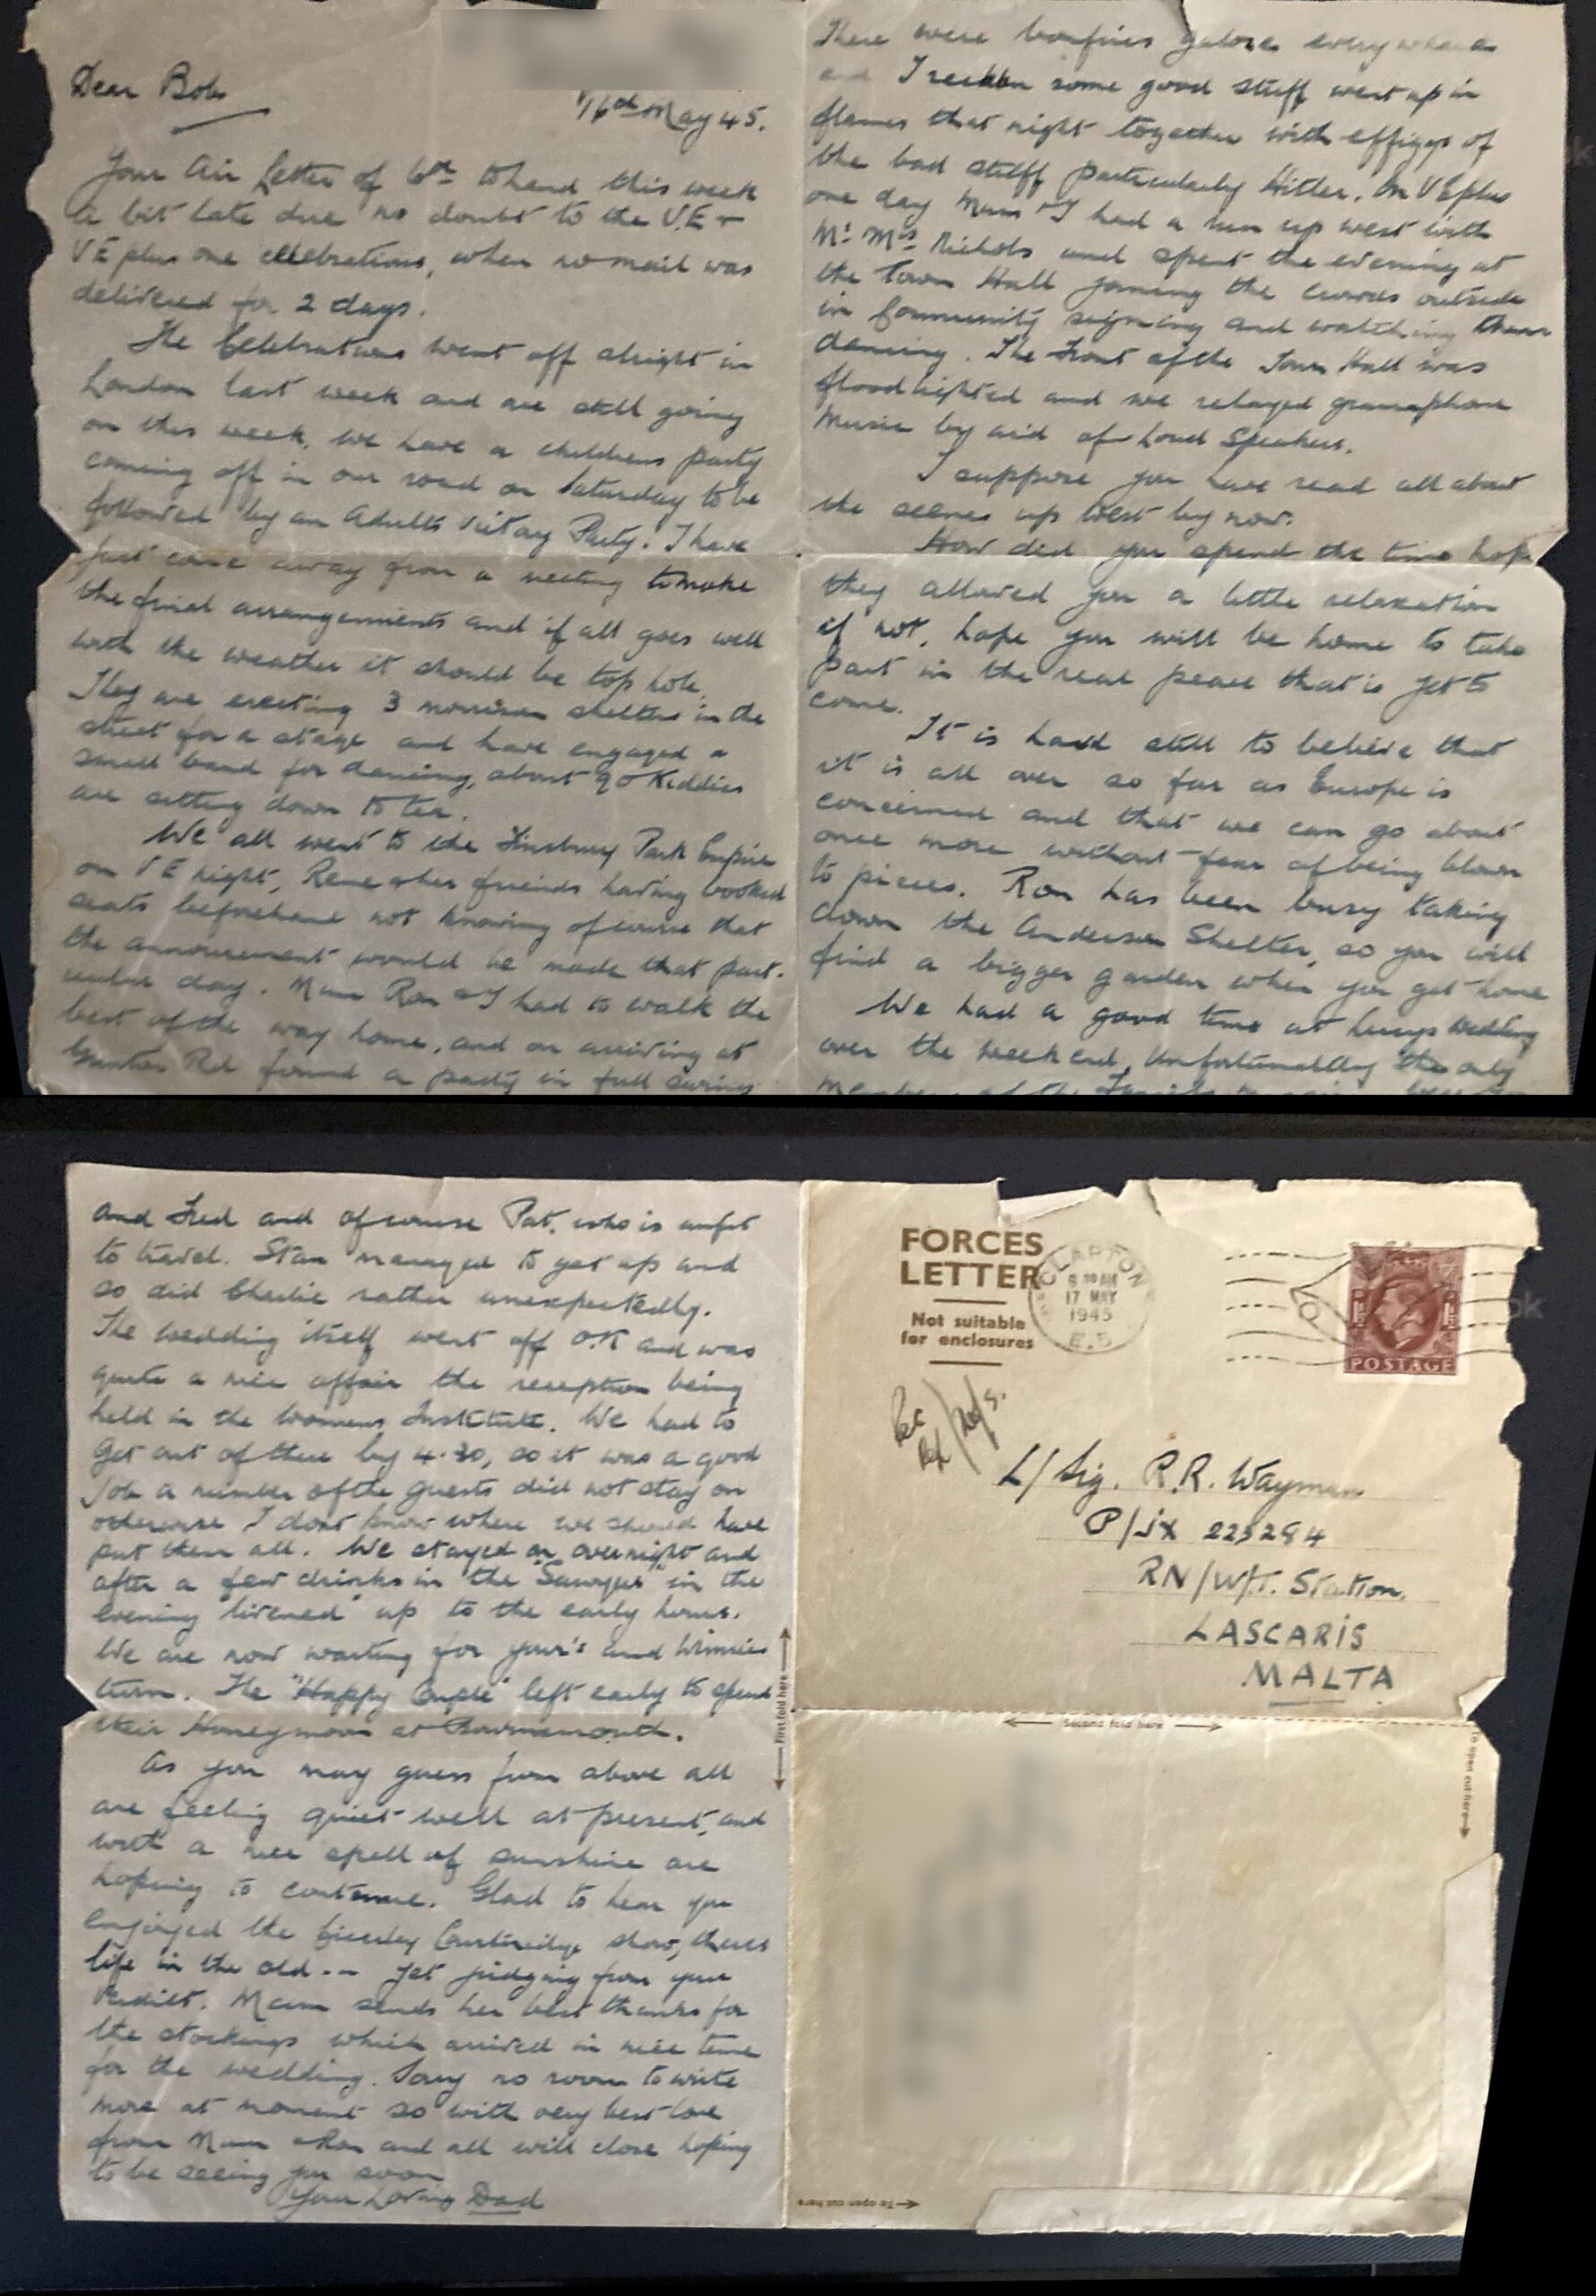 Dear Bob
16th May 45.
Your Air Letter of 6th to hand this week
a bit late due no doubt to the V.E +
VE plus one celebrations, when no mail was
delivered for 2 days.
The Celebrations went off alright in
London last week and are still going
on this week, we have a childrens party
coming off in our road on Saturday to be
followed by an Adults Victory Party. I have
just come away from a meeting to make
the final arrangements and if all goes well
with the weather it should be top hole.
They are erecting 3 morrison shelters in the
street for a stage and have engaged a
small band for dancing, about 90 Kiddies
are sitting down to tea.
We all went to the Finsbury Park Empire
on VE night, Rene & her friends having booked
seats beforehand not knowing of course that
the announcement would be made that part-
icular day. Mum Ron & I had to walk the
best of the way home, and on arriving at
Gunton Rd found a party in full swing
There were bonfires galore everywhere
and I reckon some good stuff went up in
flames that night together with effigys of
the bad stuff particularly Hitler. On VE plus
one day Mum & I had a run up west with
Mr Mrs Nichols and spent the evening at
the Town Hall joining the crowds outside
in Community signing and watching them
dancing. The front of the Town Hall was
floodlighted and we relayed gramaphone
Music by aid of Loud Speakers.
I suppose you have read all about
the scenes up West by now.
How did you spend the time hope
they allowed you a little relaxation
if not, hope you will be home to take
part in the real peace that is yet to
come.
It is hard still to believe that
it is all over so far as Europe is
concerned and that we can go about
once more without fear of being blown
to pieces. Ron has been busy taking
down the Anderson Shelter, so you will
find a bigger garden when you get home
We had a good time at Lucys Wedding
over the weekend, Unfortunatley the only
and Fred and of course Pat. who is unfit
to travel. Stan managed to get up and
so did Charlie rather unexpectedly.
The wedding itself went off O.K and was
quite a nice affair the reception being
held in the Womens Institute. We had to
get out of there by 4.30, so it was a good
job a number of the guests did not stay on
otherwise I dont know where we should have
put them all. We stayed on overnight and
after a few drinks in the "Sawyers" in the
evening "livened" up to the early hours.
We are now waiting for your's and Winnies
turn. The "Happy Couple" left early to spend
their Honeymoon at Bournemouth.
As you may guess from above all
are feeling quiet well at present, and
with a nice spell of sunshine are
hoping to continue. Glad to hear you
enjoyed the Cicerley Courtneidge show, theres
life in the old -- yet judging from your
Mum sends her best thanks for
the stockings which arrived in nice time
for the wedding. Sorry no room to write
more at moment so with very best love
from Mum & Ron and all will close hoping
to be seeing you soon
Your Loving Dad
First fold here
FORCES
LETTER
Not suitable
for enclosures
CLAPTON
9 30 AM
17 MAY
1945
E.5
POSTAGE
L/Sig. R.R. Wayman
P/JX 225284
RN/W/T. Station.
LASCARIS
MALTA
Second fold here
To open cut here
To open cut here